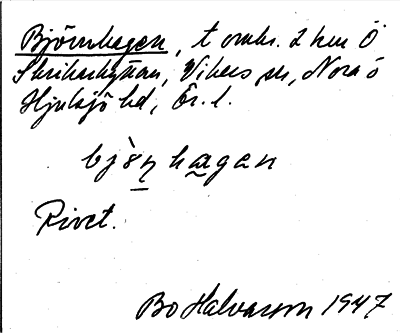 Björnhagen, t omkr. 2 km Ö
Skrikarhyttan, Vikers sn, Nora o
Hjulsjö hd, Ör. l.
bjö̀ṇhagen
Rivet.
Bo Halvarson 1947